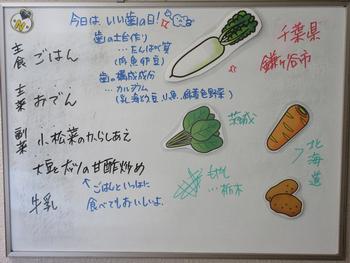 今日は、いい歯の日!
歯の土台作り
…たんぱく質
(肉魚卵豆)
歯の構成成分
…カルシウム
主食 ごはん
主菜 おでん
副菜 小松菜のからしあえ
牛乳
ごはんといっしょに
食べてもおいしいよ。
千葉県
鎌ヶ谷市
茨城
北海道
もやし
…栃木